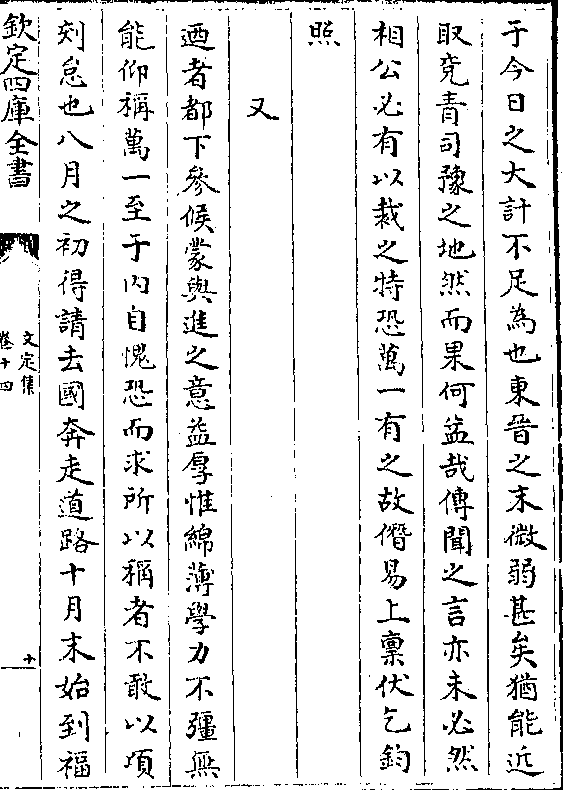 于今日之大計不足為也東晉之末微弱甚矣猶能近
取兖青司豫之地然而果何益哉傳聞之言亦未必然
相公必有以裁之特恐萬一有之故僭易上禀伏乞鈞
照
又
迺者都下參候蒙與進之意益厚惟綿薄學力不彊無
能仰稱萬一至于内自愧恐而求所以稱者不敢以頃
刻怠也八月之初得請去國奔走道路十月末始到福
欽定四庫全書
文定集
卷十四
十